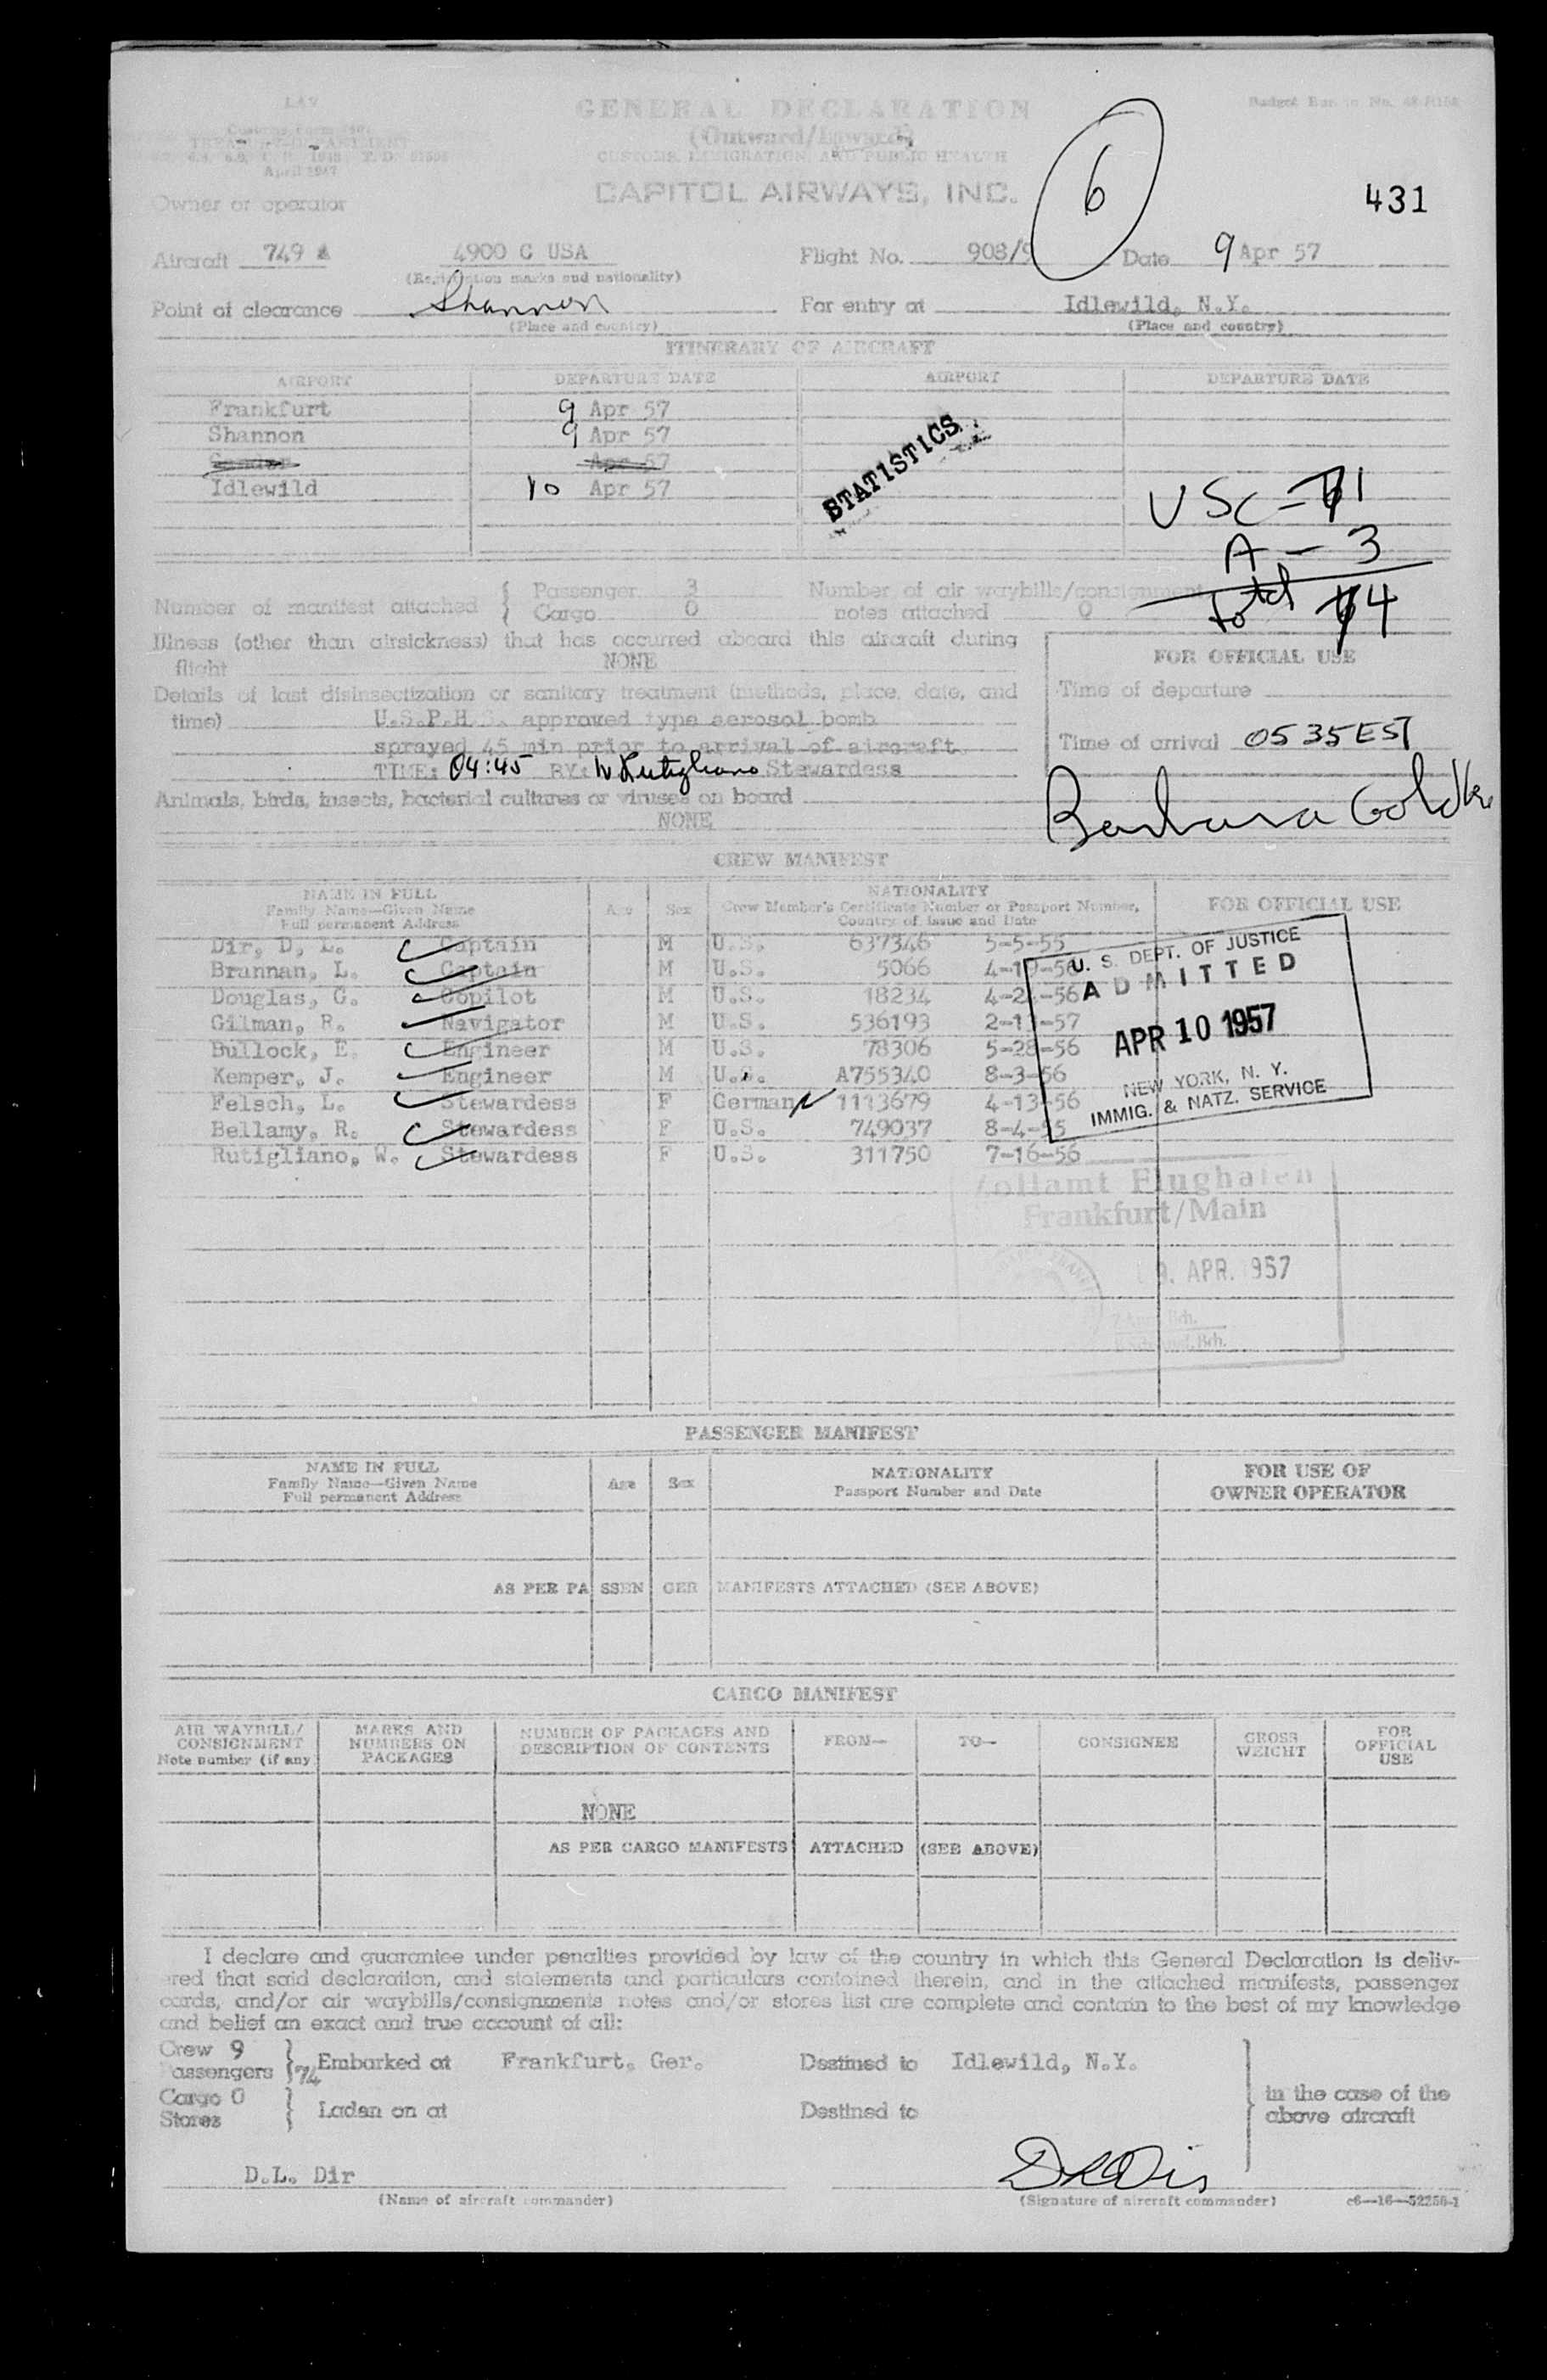 GENERAL DECLARATION
(Outward/Inward)
CUSTOMS, IMMIGRATION, AND PUBLIC HEALTH
CAPITOL AIRWAYS, INC.
TREASURY DEPARTMENT
April 1947
6
431
Owner or operator
Aircraft 749 A 4900 C USA Flight No. 908/9 Date 9 Apr 57
(Registration marks and nationality)
Point of clearance Shannon For entry at Idlewild, N.Y.
(Place and country) (Place and country)
ITINERARY OF AIRCRAFT
AIRPORT DEPARTURE DATE AIRPORT DEPARTURE DATE
Frankfurt 9 Apr 57
Shannon 9 Apr 57
Gander Apr 57
Idlewild 10 Apr 57
STATISTICS
USC - 71
A - 3
Total 74
Number of manifest attached { Passenger 3 Number of air waybills/consignment
Cargo 0 notes attached 0
Illness (other than airsickness) that has occurred aboard this aircraft during
flight NONE
FOR OFFICIAL USE
Details of last disinsectization or sanitary treatment (methods, place, date, and
time) U.S.P.H.S. approved type aerosol bomb
sprayed 45 min prior to arrival of aircraft.
TIME: 04:45 BY: W Rutigliano Stewardess
Time of departure
Time of arrival 0535 EST
Animals, birds, insects, bacterial cultures or viruses on board
NONE
Barbara
CREW MANIFEST
NAME IN FULL
Family Name—Given Name
Full permanent Address
Age
Sex
NATIONALITY
Crew Member's Certificate Number or Passport Number,
Country of Issue and Date
FOR OFFICIAL USE
Dir, D. L. Captain M U.S. 637346 5-5-55
Brannan, L. Captain M U.S. 5066 4-19-56
Douglas, G. Copilot M U.S. 18234 4-24-56
Gilman, R. Navigator M U.S. 536193 2-11-57
Bullock, E. Engineer M U.S. 78306 5-28-56
Kemper, J. Engineer M U.S. A755340 8-3-56
Felsch, L. Stewardess F German 1113679 4-13-56
Bellamy, R. Stewardess F U.S. 749037 8-4-55
Rutigliano, W. Stewardess F U.S. 311750 7-16-56
U. S. DEPT. OF JUSTICE
ADMITTED
APR 10 1957
NEW YORK, N. Y.
IMMIG. & NATZ. SERVICE
Zollamt Flughafen
Frankfurt/Main
9. APR. 1957
PASSENGER MANIFEST
NAME IN FULL
Family Name—Given Name
Full permanent Address
Age
Sex
NATIONALITY
Passport Number and Date
FOR USE OF
OWNER OPERATOR
AS PER PASSENGER MANIFESTS ATTACHED (SEE ABOVE)
CARGO MANIFEST
AIR WAYBILL/
CONSIGNMENT
Note number (if any
MARKS AND
NUMBERS ON
PACKAGES
NUMBER OF PACKAGES AND
DESCRIPTION OF CONTENTS
FROM—
TO—
CONSIGNEE
GROSS
WEIGHT
FOR
OFFICIAL
USE
NONE
AS PER CARGO MANIFESTS ATTACHED (SEE ABOVE)
I declare and guarantee under penalties provided by law of the country in which this General Declaration is deliv-
ered that said declaration, and statements and particulars contained therein, and in the attached manifests, passenger
cards, and/or air waybills/consignments notes and/or stores list are complete and contain to the best of my knowledge
and belief an exact and true account of all:
Crew 9
Passengers 74 } Embarked at Frankfurt, Ger. Destined to Idlewild, N.Y.
Cargo 0
Stores } Laden on at Destined to
in the case of the
above aircraft
D.L. Dir DL Dir
(Name of aircraft commander) (Signature of aircraft commander) c6—16—52256-1